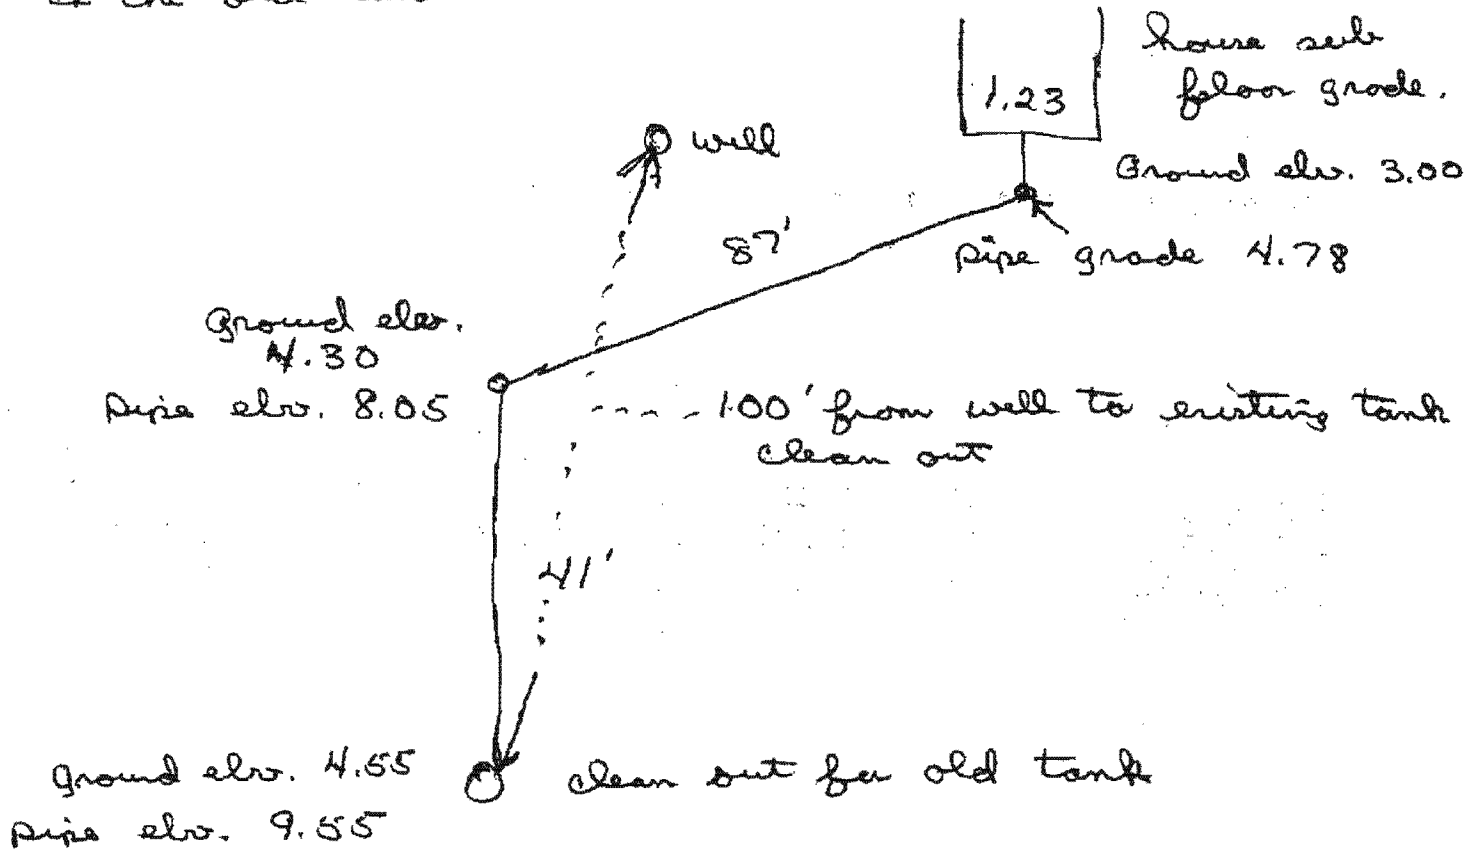 the old
house sub
floor grade.
1.23
well
Ground elv. 3.00
87'
pipe grade 4.78
Ground elev.
4.30
pipe elv. 8.05
100' from well to existing tank
clean out
41'
Ground elv. 4.55
clean out for old tank
pipe elv. 9.55